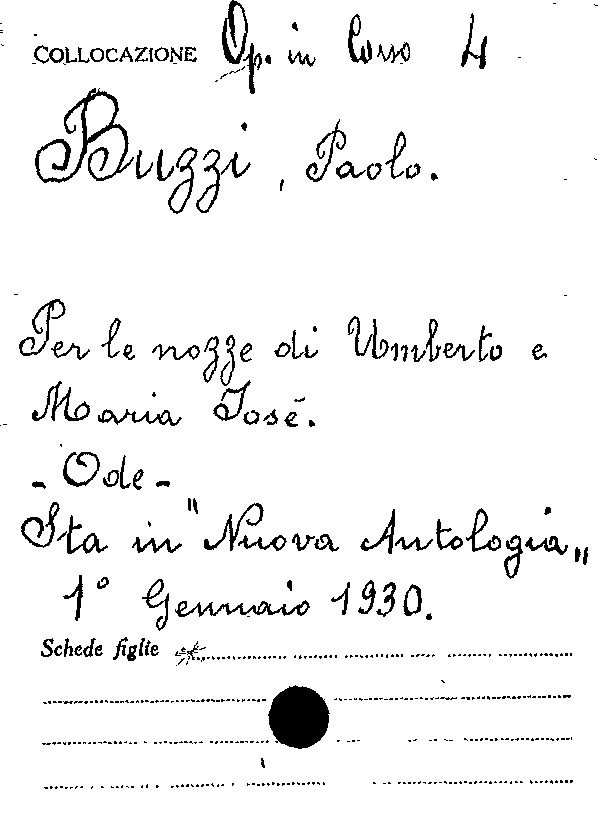 COLLOCAZIONE Op. in Corso 4
Buzzi, Paolo.
Per le nozze di Umberto e
Maria José.
- Ode -
Sta in "Nuova Antologia„
1° Gennaio 1930.
Schede figlie